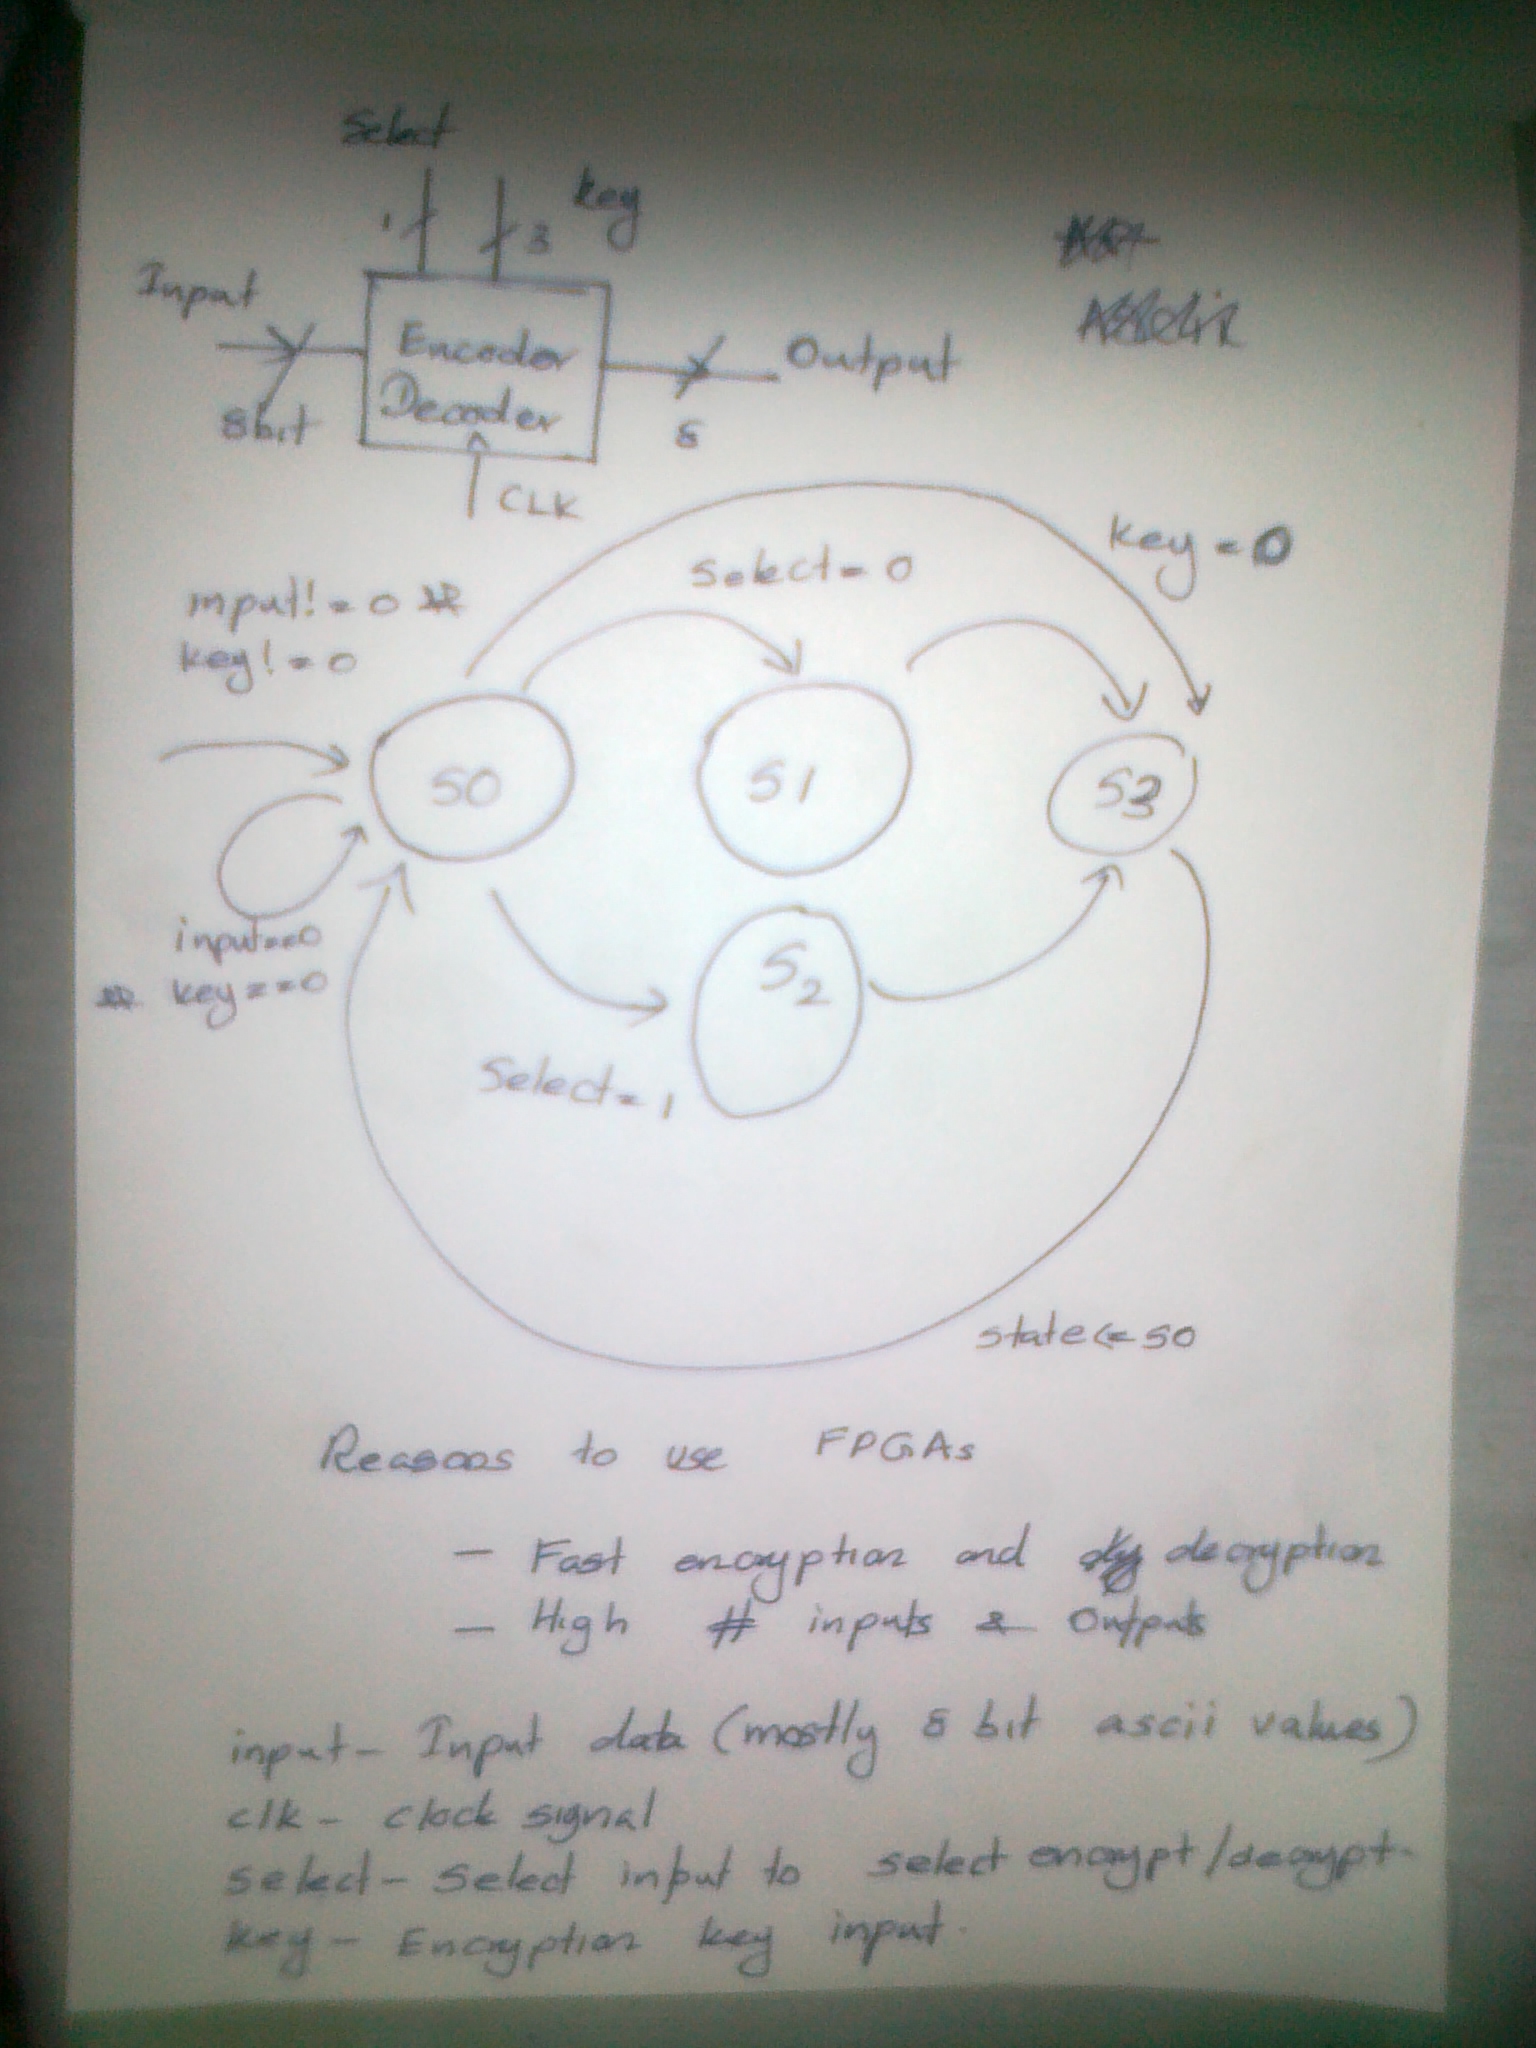 Select
key
1
3
Input
Encoder
Decoder
Output
8bit
8
CLK
key = 0
Select = 0
input! = 0
key! = 0
S0
S1
S3
input==0
key==0
S2
Select = 1
state<=S0
Reasons to use FPGAs
– Fast encryption and decryption
– High # inputs & Outputs
input – Input data (mostly 8 bit ascii values)
clk – clock signal
select – Select input to select encrypt/decrypt.
key – Encryption key input.